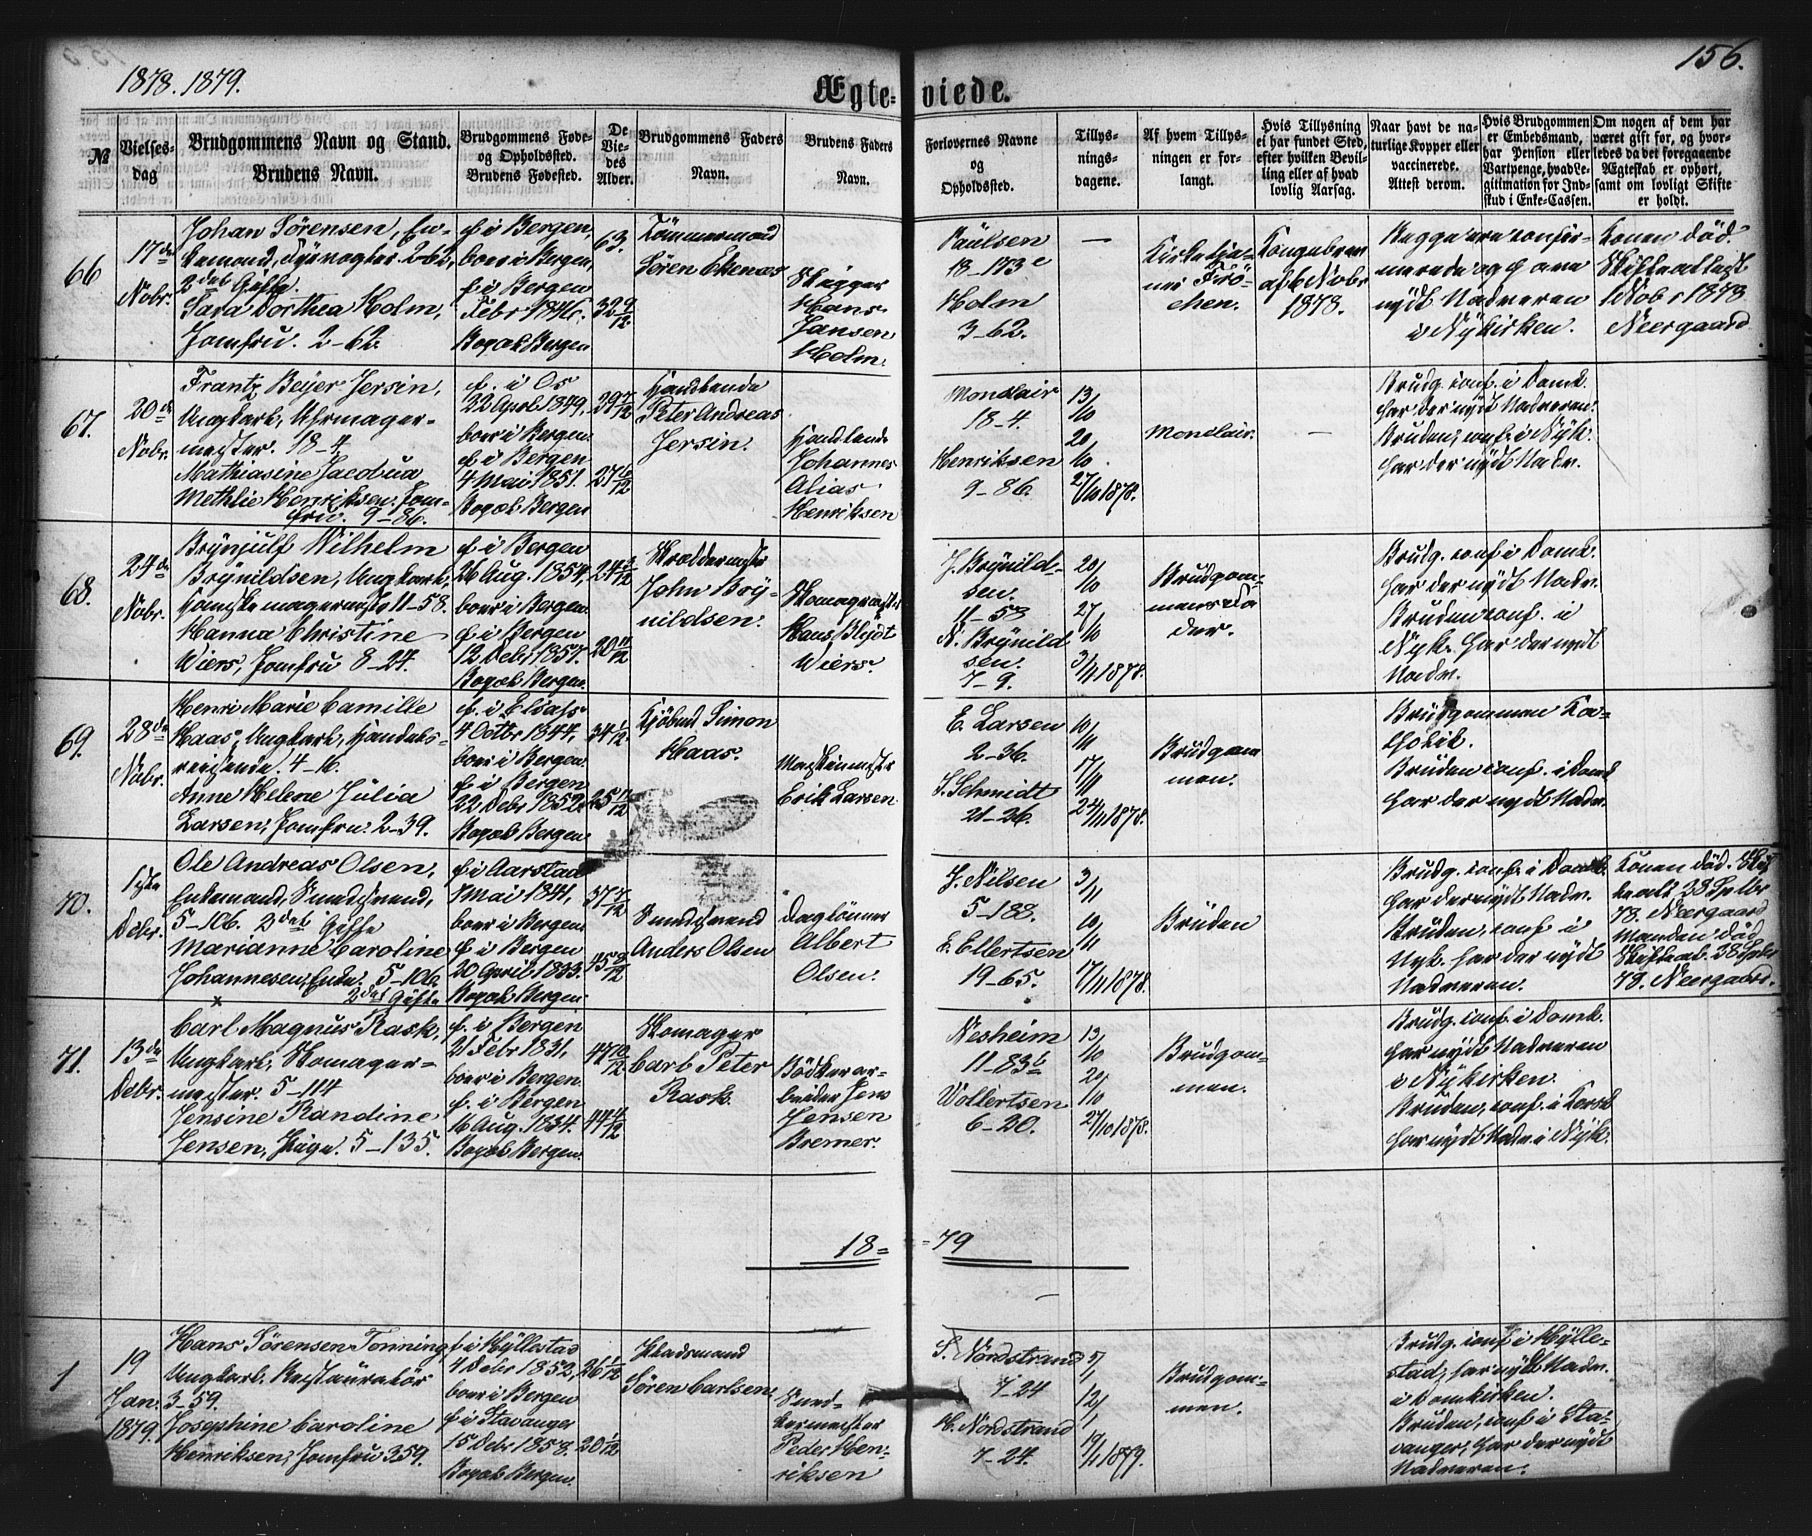 1878. 1879.
Ægteviede.
156.
№
Vielses-
dag
Brudgommens Navn og Stand.
Brudens Navn.
Brudgommens Føde-
og Opholdssted.
Brudens Fødested.
De
Vie-
des
Alder.
Brudgommens Faders
Navn.
Brudens Faders
Navn.
Forlovernes Navne
og
Opholdssted.
Tillys-
nings-
dagene.
Af hvem Tillys-
ningen er for-
langt.
Hvis Tillysning
ei har fundet Sted,
efter hvilken Bevil-
ling eller af hvad
lovlig Aarsag.
Naar havt de na-
turlige Kopper eller
vaccinerede.
Attest derom.
Hvis Brudgommen
er Embedsmand,
har Pension eller
Vartpenge, hvad Le-
gitimation for Ind-
skud i Enke-Cassen.
Om nogen af dem har
været gift før, og hvor-
ledes da det foregaaende
Ægteskab er ophørt,
samt om lovligt Skifte
er holdt.
66
17de
Nobr.
Johan Sørensen, En-
kemand, Fyrvogter 2-62,
2det Gifte.
Sara Dorthea Holm,
Jomfru. 2-62.
f. i Bergen,
boer i Bergen,
f. i Bergen
Febr 1846.
Bopæl Bergen
63.
32 9/12
Tømmermand
Søren Ekenæs
Skipper
Hans
Jansen
Holm.
Paulsen
13-173c
Holm
3-62.
—
Kongebrev
af 6 Nobr
1878.
Begge ere confir-
merede og have
nydt Nadveren
i Nykirken.
Konen død.
Skifteattest
1 Nobr 1878
Neergaard
67.
20de
Nobr.
Frantz Beyer Jersin,
Ungkarl, Uhrmager-
mester. 18-4.
Mathiasine Jacobua
Methlie Henriksen, Jom-
fru. 9-86.
f. i Os
22 April 1849,
boer i Bergen.
f. i Bergen
4 Mai 1851.
Bopæl Bergen
29 7/12
27 6/12
Handlende
Peter Andreas
Jersin.
Handlende
Johannes
Alias
Henriksen
Monclair
18-4.
Henriksen
9-86.
13/10
20/10
27/10 1878.
Monclair.
—
Brudg. conf. i Domk.
har der nydt Nadveren.
Bruden, conf. i Nyk.
har der nydt Nadv.
68.
24de
Nobr.
Brynjulf Wilhelm
Brynildsen, Ungkarl,
Handskemagermester 11-58.
Hanna Christine
Wiers, Jomfru 8-27.
f. i Bergen
26 Aug. 1854,
boer i Bergen.
f. i Bergen
12 Debr 1857.
Bopæl Bergen.
24 3/12
20 11/12
Skræddermester
John Bry-
nildsen.
Skomagermester
Hans Blydt
Wiers.
J. Brynild-
sen.
11-58
N. Brynild
sen.
7-9.
20/10
27/10
3/11 1878.
Brudgom-
mens Fa
der.
Brudg. conf. i Domk.
har der nydt Nadv.
Bruden conf. i
Nyk. har der nydt
Nadv.
69.
28de
Nobr.
Henri Marie Camille
Haas, Ungkarl, Handels-
reisende. 4-16.
Anne Helene Julia
Larsen, Jomfru. 2-39.
f. i Elsass
4 Octbr 1844,
boer i Bergen.
f. i Bergen
22 Debr 1852.
Bopæl Bergen.
34 1/12.
25 11/12
Kjøbmd Simon
Haas.
Maskinmester
Erik Larsen.
E. Larsen
2-36.
S. Schmidt
21-26.
10/11
17/11
24/11 1878.
Brudgom
men.
Brudgommen Ka-
tholik.
Bruden conf. i Domk
har der nydt Nadv.
70.
1ste
Debr.
Ole Andreas Olsen,
Enkemand, Smedsvend,
5-106. 2det Gifte
Marianne Caroline
Johannesen, Enke. 5-106.
2det Gifte
f. i Aarstad
Mai 1841,
boer i Bergen.
f. i Bergen
20 April 1833.
Bopæl Bergen.
37 7/12
45 8/12
Smedsvend
Anders Olsen
Daglønner
Albert
Olsen.
J. Nilsen
5-188.
E. Ellertsen
19-65.
3/11
10/11
17/11 1878.
Bruden
Brudg. conf. i Domk.
har der nydt Nadv.
Bruden, conf. i
Nyk. har der nydt
Nadveren.
Konen død. Skif
teatt. 28 Septbr
78. Neergaard
Manden død
Skifteat. 28 Septbr
78. Neergaard.
71.
13de
Debr.
x
Carl Magnus Rask,
Ungkarl, Skomager-
mester. 5-114
Jensine Randine
Jensen, Pige. 5-135.
f. i Bergen
21 Febr 1831,
boer i Bergen.
f. i Bergen
16 Aug. 1834.
Bopæl Bergen.
47 10/12
44 4/12
Skomager
Carl Peter
Rask.
Bødkerar-
beider Jens
Jensen
Bremer.
Nesheim
11-83b
Wollertsen
6-20.
13/10
20/10
27/10 1878.
Brudgom-
men.
Brudg. conf. i Domk.
har nydt Nadveren
i Nykirken.
Bruden, conf. i Korsk
har nydt Nadv. i Nyk.
18=79
1
19
Jan.
1879.
Hans Sørensen Tonning,
Ungkarl. Restauratør
3-59.
Josephine Caroline
Henriksen, Jomfru 3 59.
f. i Hyllestad
4 Debr 1852,
boer i Bergen
f. i Stavanger
15 Debr 1858.
Bopæl Bergen.
26 1/12
20 1/12
Pladsmand
Søren Carlsen.
Peder Hen-
riksen
S. Nordstrand
7-24
H. Nordstrand
7-24.
5/1
12/1
19/1 1879.
Brudgom-
men.
Brudg. conf. i Hylle-
stad, har nydt Nadv.
i Domkirken.
Bruden, conf. i Sta-
vanger, har der nydt
Nadveren.